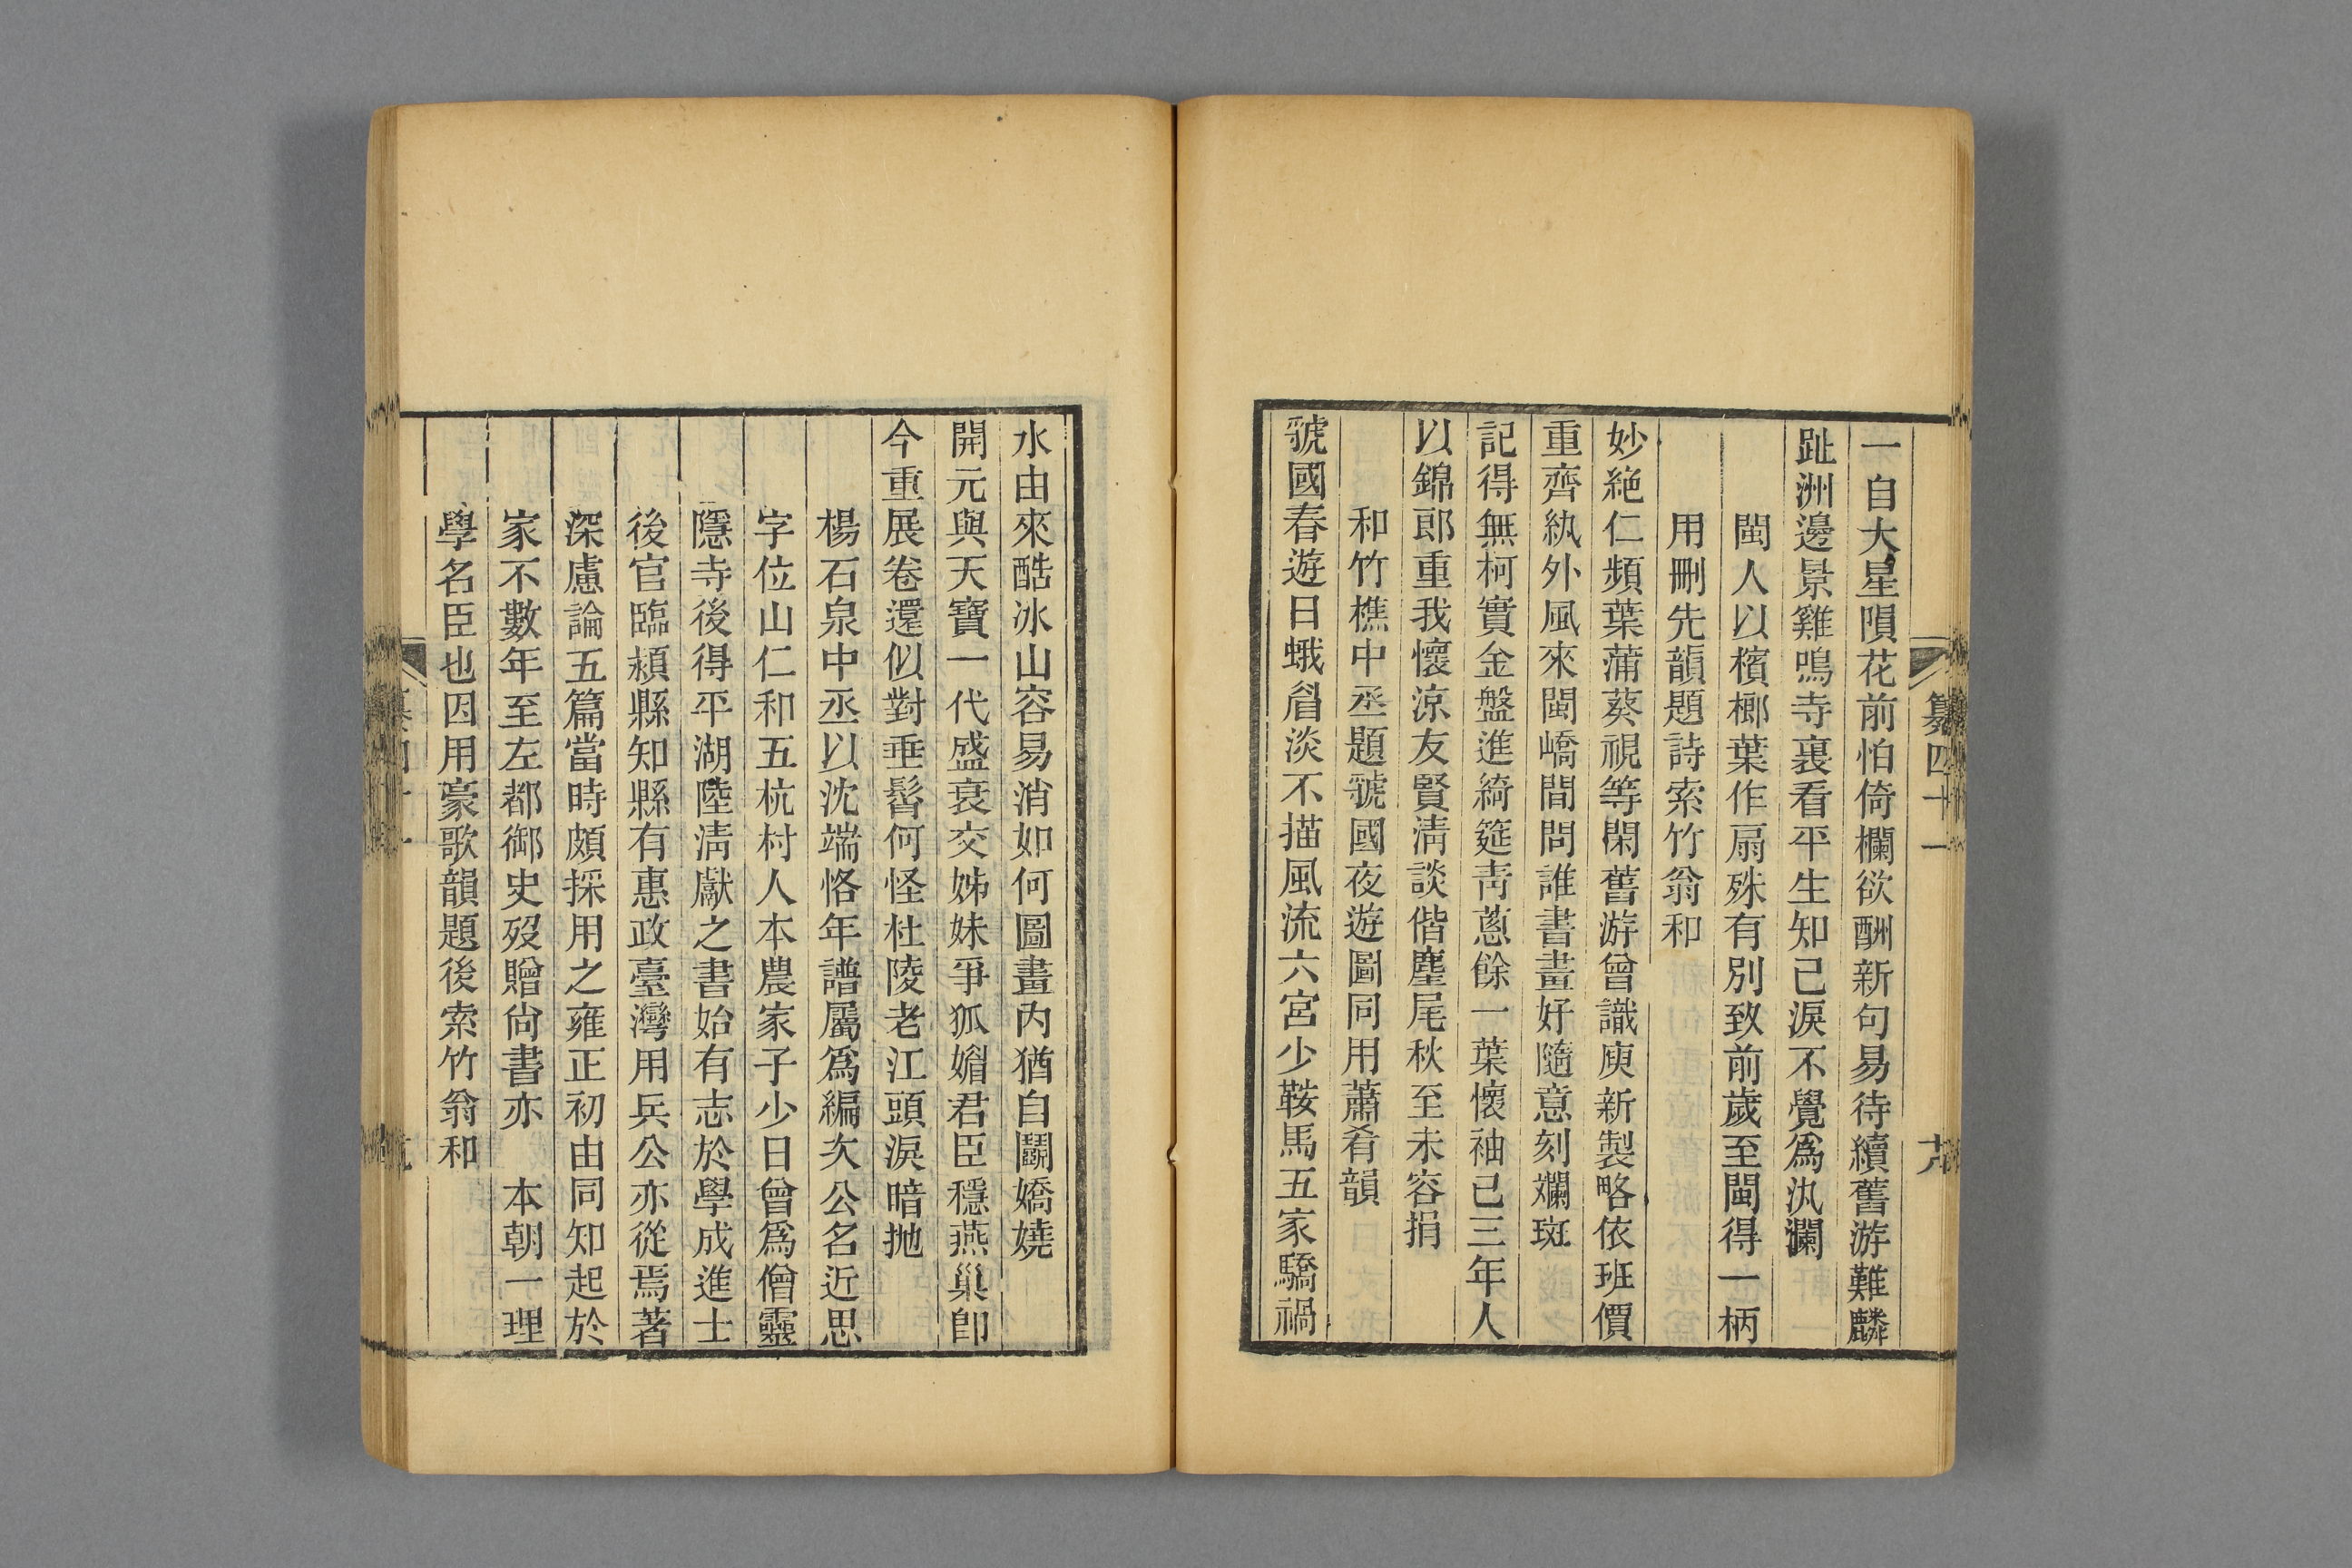 纂四十一
一自大星隕花前怕倚欄欲酬新句易待續舊游難麟
趾洲邊景雞鳴寺裏看平生知己淚不覺爲汍瀾
閩人以檳榔葉作扇殊有別致前歲至閩得一柄
用刪先韻題詩索竹翁和
妙絶仁頻葉蒲葵視等閑舊游曾識庾新製略依班價
重齊紈外風來閩嶠間問誰書畫好隨意刻斕斑
記得無柯實金盤進綺筵靑蔥餘一葉懷袖已三年人
以錦郎重我懷涼友賢淸談偕麈尾秋至未容捐
和竹樵中丞題虢國夜遊圖同用蕭肴韻
虢國春遊日蛾眉淡不描風流六宮少鞍馬五家驕禍
水由來酷冰山容易消如何圖畫內猶自鬬嬌嬈
開元與天寶一代盛衰交姊妹爭狐媚君臣穩燕巢卽
今重展卷還似對垂髫何怪杜陵老江頭淚暗抛
楊石泉中丞以沈端恪年譜屬爲編次公名近思
字位山仁和五杭村人本農家子少日曾爲僧靈
隱寺後得平湖陸淸獻之書始有志於學成進士
後官臨潁縣知縣有惠政臺灣用兵公亦從焉著
深慮論五篇當時頗採用之雍正初由同知起於
家不數年至左都御史歿贈尙書亦 本朝一理
學名臣也因用豪歌韻題後索竹翁和